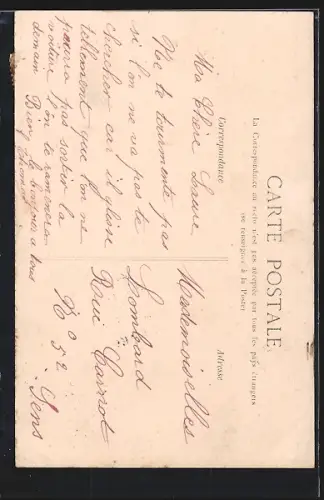 CARTE POSTALE
La Correspondance au recto n'est pas acceptée par tous les pays étrangers
se renseigner à la Poste
Correspondance
Adresse
Ma Chère Laure,
Ne te tourmente pas
si l'on ne va pas te
chercher car il glisse
tellement que l'on ne
pourra pas sortir la
voiture l'on te ramènera
demain Bien le bonjour à tous
Mademoiselles
Lombard
Rue Carnot
No 52
Sens